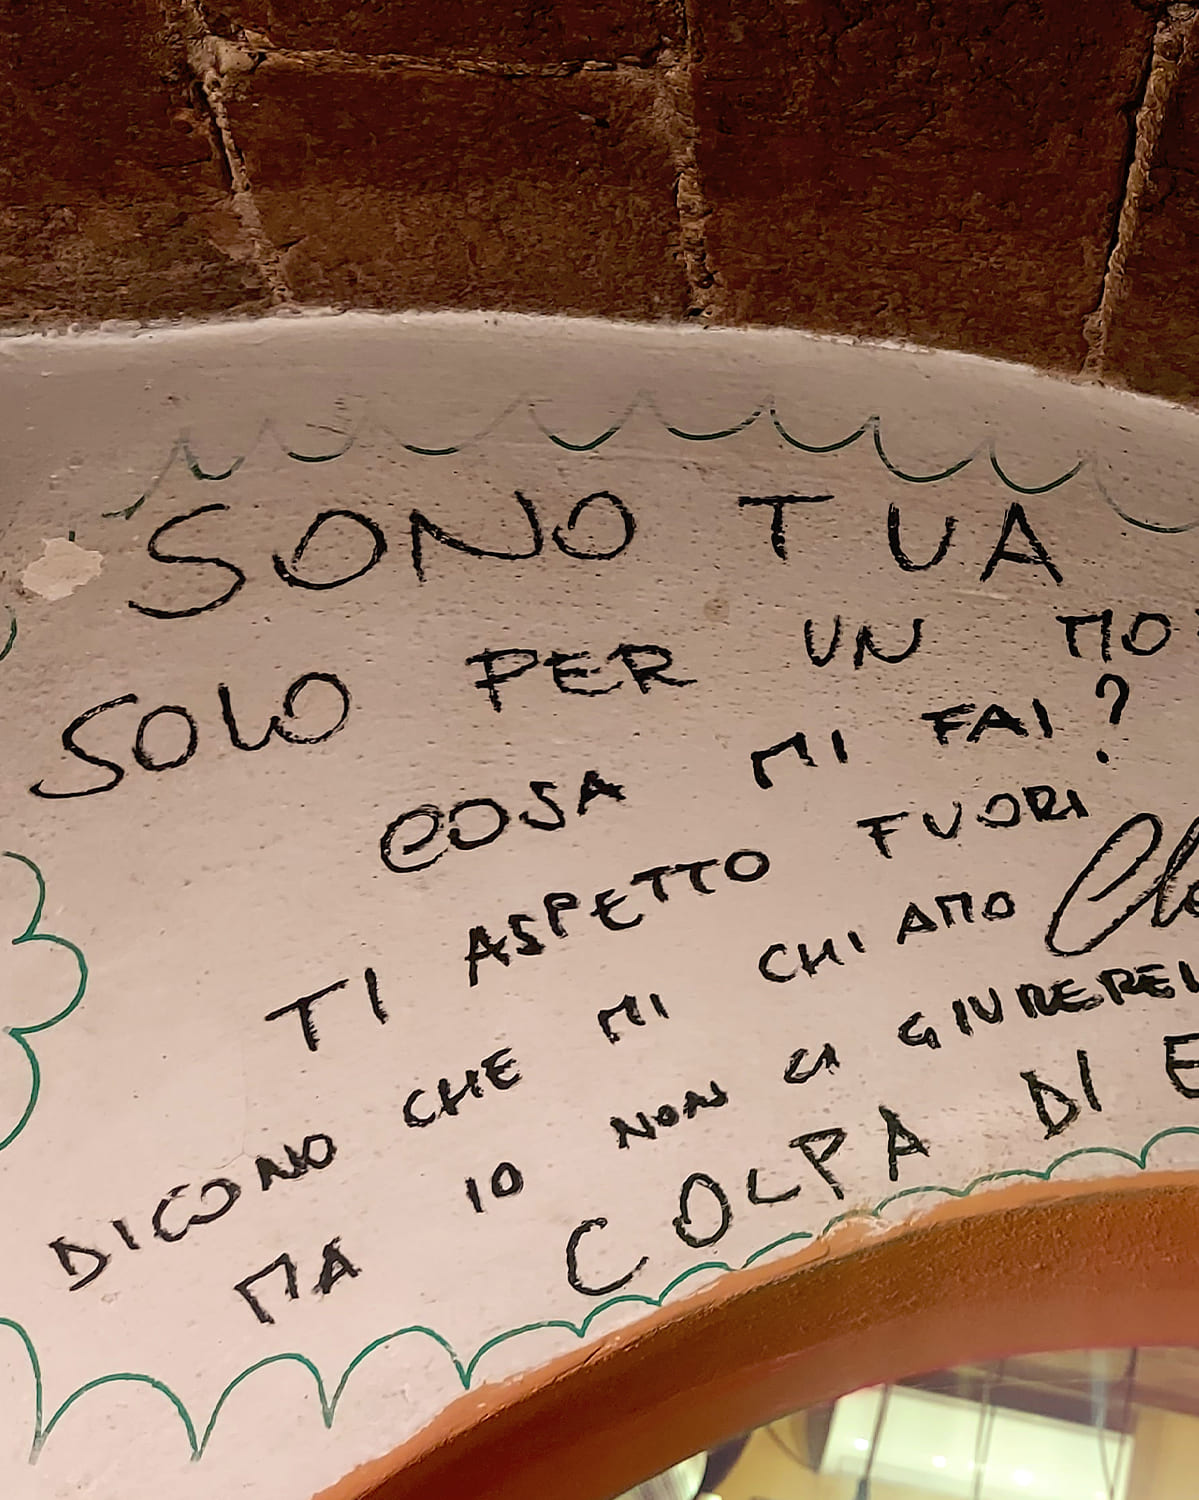 SONO TUA
SOLO PER UN MO
COSA MI FAI?
TI ASPETTO FUORI
DICONO CHE MI CHIAMO
MA IO NON CI GIUREREI
COLPA DI E